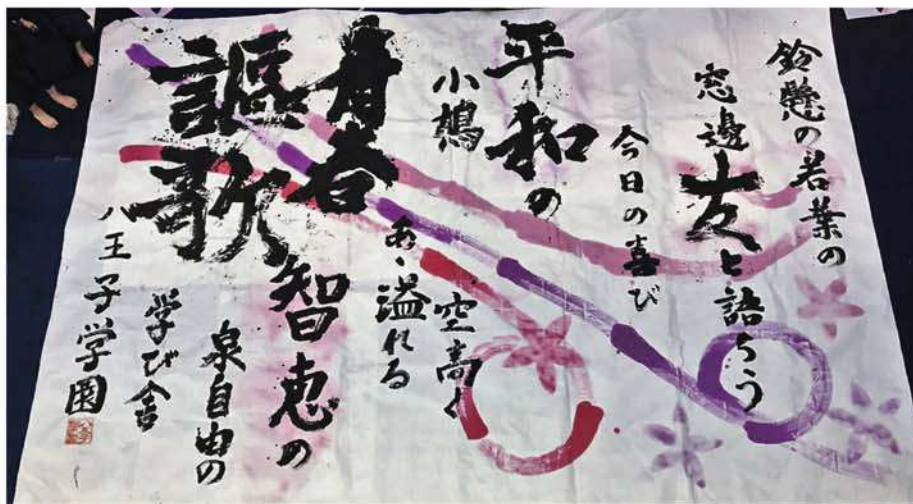 鈴懸の若葉の
窓邊友と語らう
今日の喜び
平和の
小鳩
空高く
青春
謳歌
あゝ溢れる
智恵の
泉自由の
学び舎
八王子学園